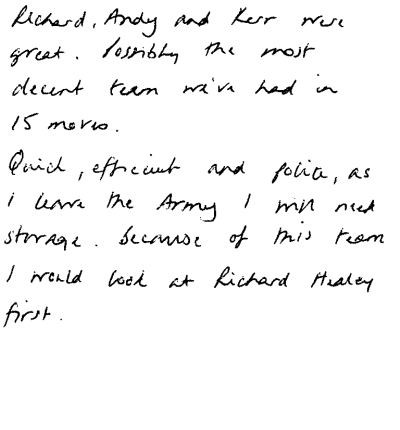 Richard, Andy and Kerr were
great. Possibly the most
decent team we've had in
15 moves.
Quick, efficient and polite, as
i leave the Army I will need
storage. Because of this team
I would look at Richard Healey
first.